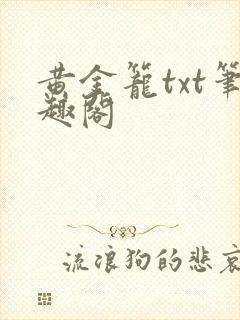 黄金籠txt筆
趣閣
流浪狗的悲哀